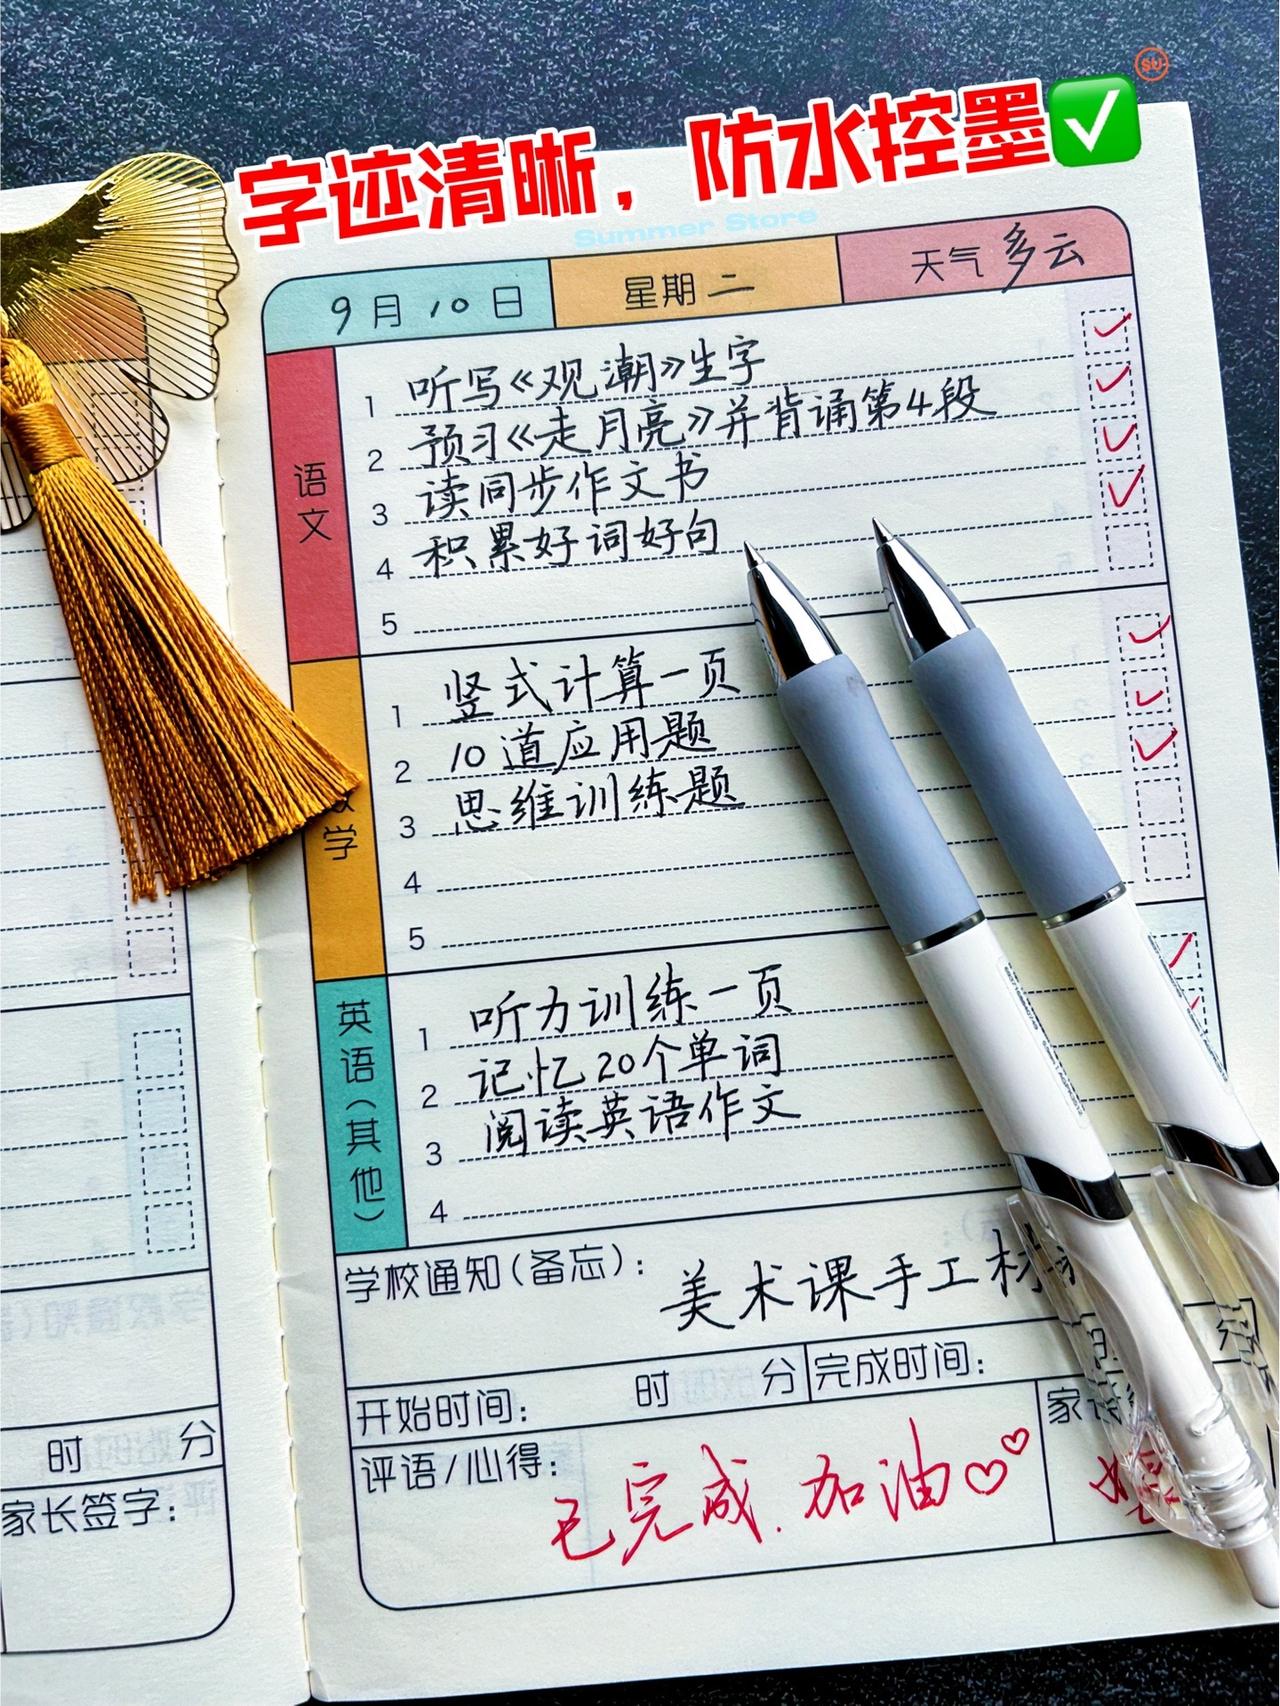 SU
字迹清晰，防水控墨
Summer Store
9月10日 星期二 天气 多云
语文
1 听写《观潮》生字
2 预习《走月亮》并背诵第4段
3 读同步作文书
4 积累好词好句
5
学
1 竖式计算一页
2 10道应用题
3 思维训练题
4
5
英语(其他)
1 听力训练一页
2 记忆20个单词
3 阅读英语作文
4
学校通知(备忘): 美术课手工材
开始时间: 时 分 完成时间: 分
评语/心得: 已完成.加油
家
时 分
家长签字: